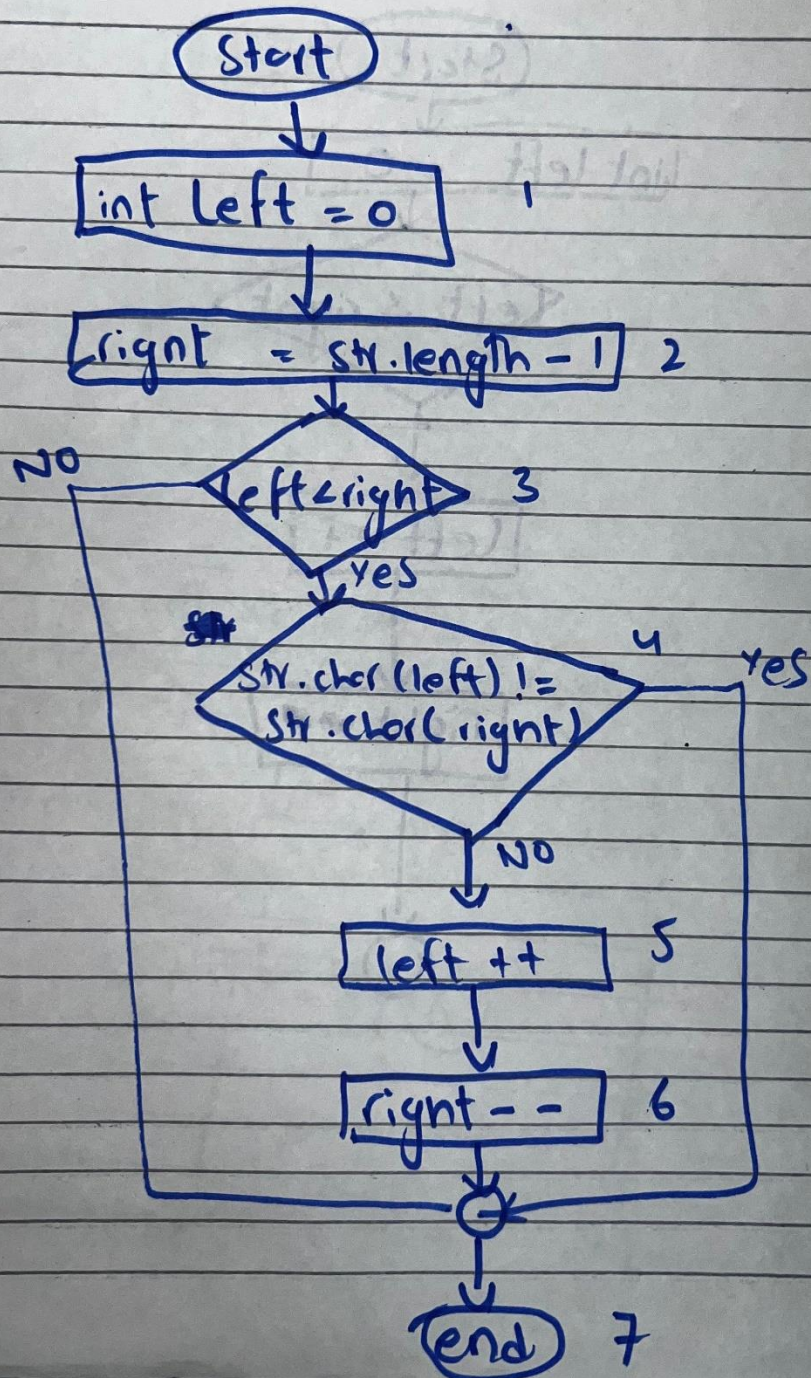 Start
int left = 0 1
right = str.length - 1 2
NO
left < right 3
yes
4
yes
str.char(left) !=
str.char(right)
NO
left ++ 5
right - - 6
end 7